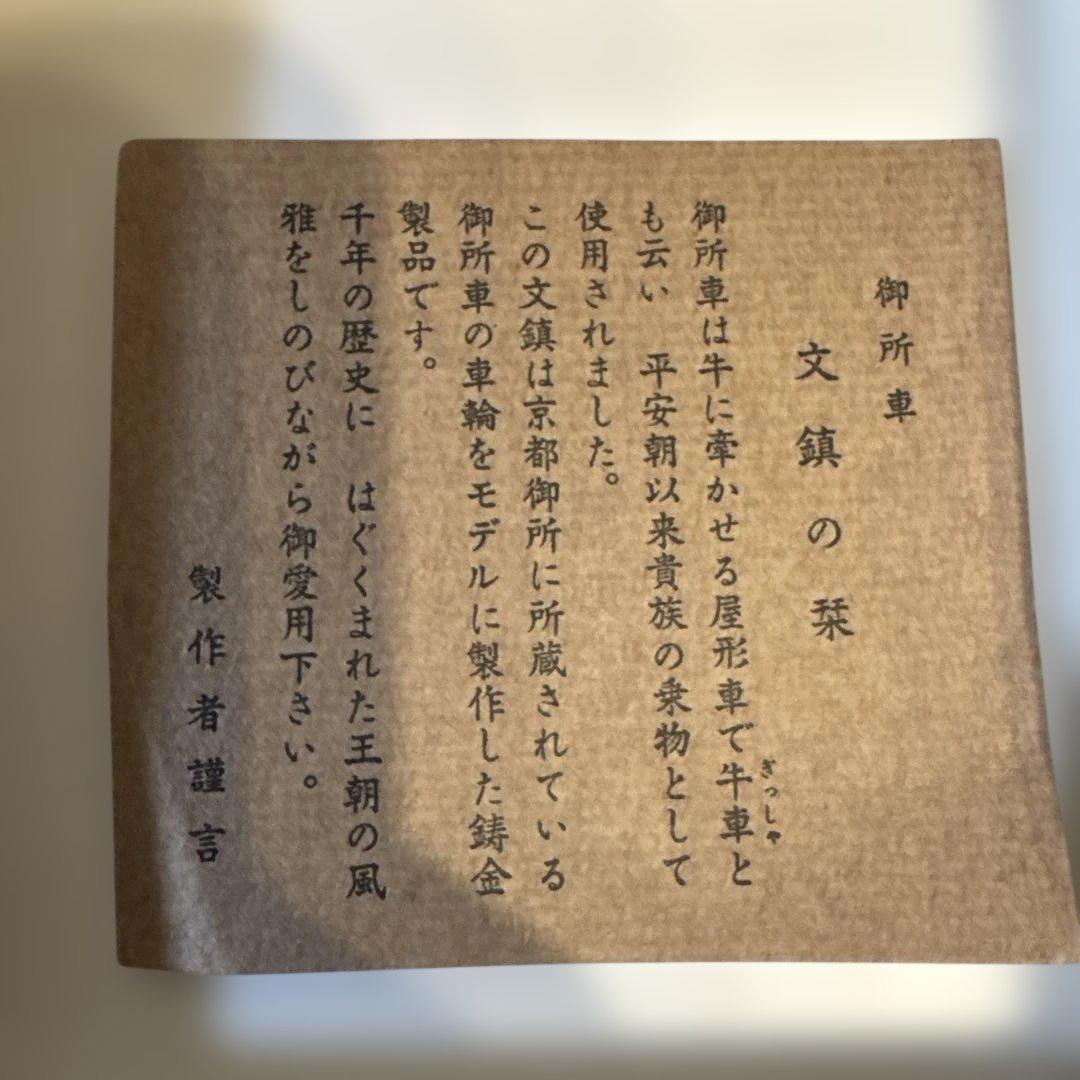 御所車
文鎮の栞
御所車は牛に牽かせる屋形車で牛車と
ぎっしゃ
も云い　平安朝以来貴族の乗物として
使用されました。
この文鎮は京都御所に所蔵されている
御所車の車輪をモデルに製作した鋳金
製品です。
千年の歴史に　はぐくまれた王朝の風
雅をしのびながら御愛用下さい。
製作者謹言